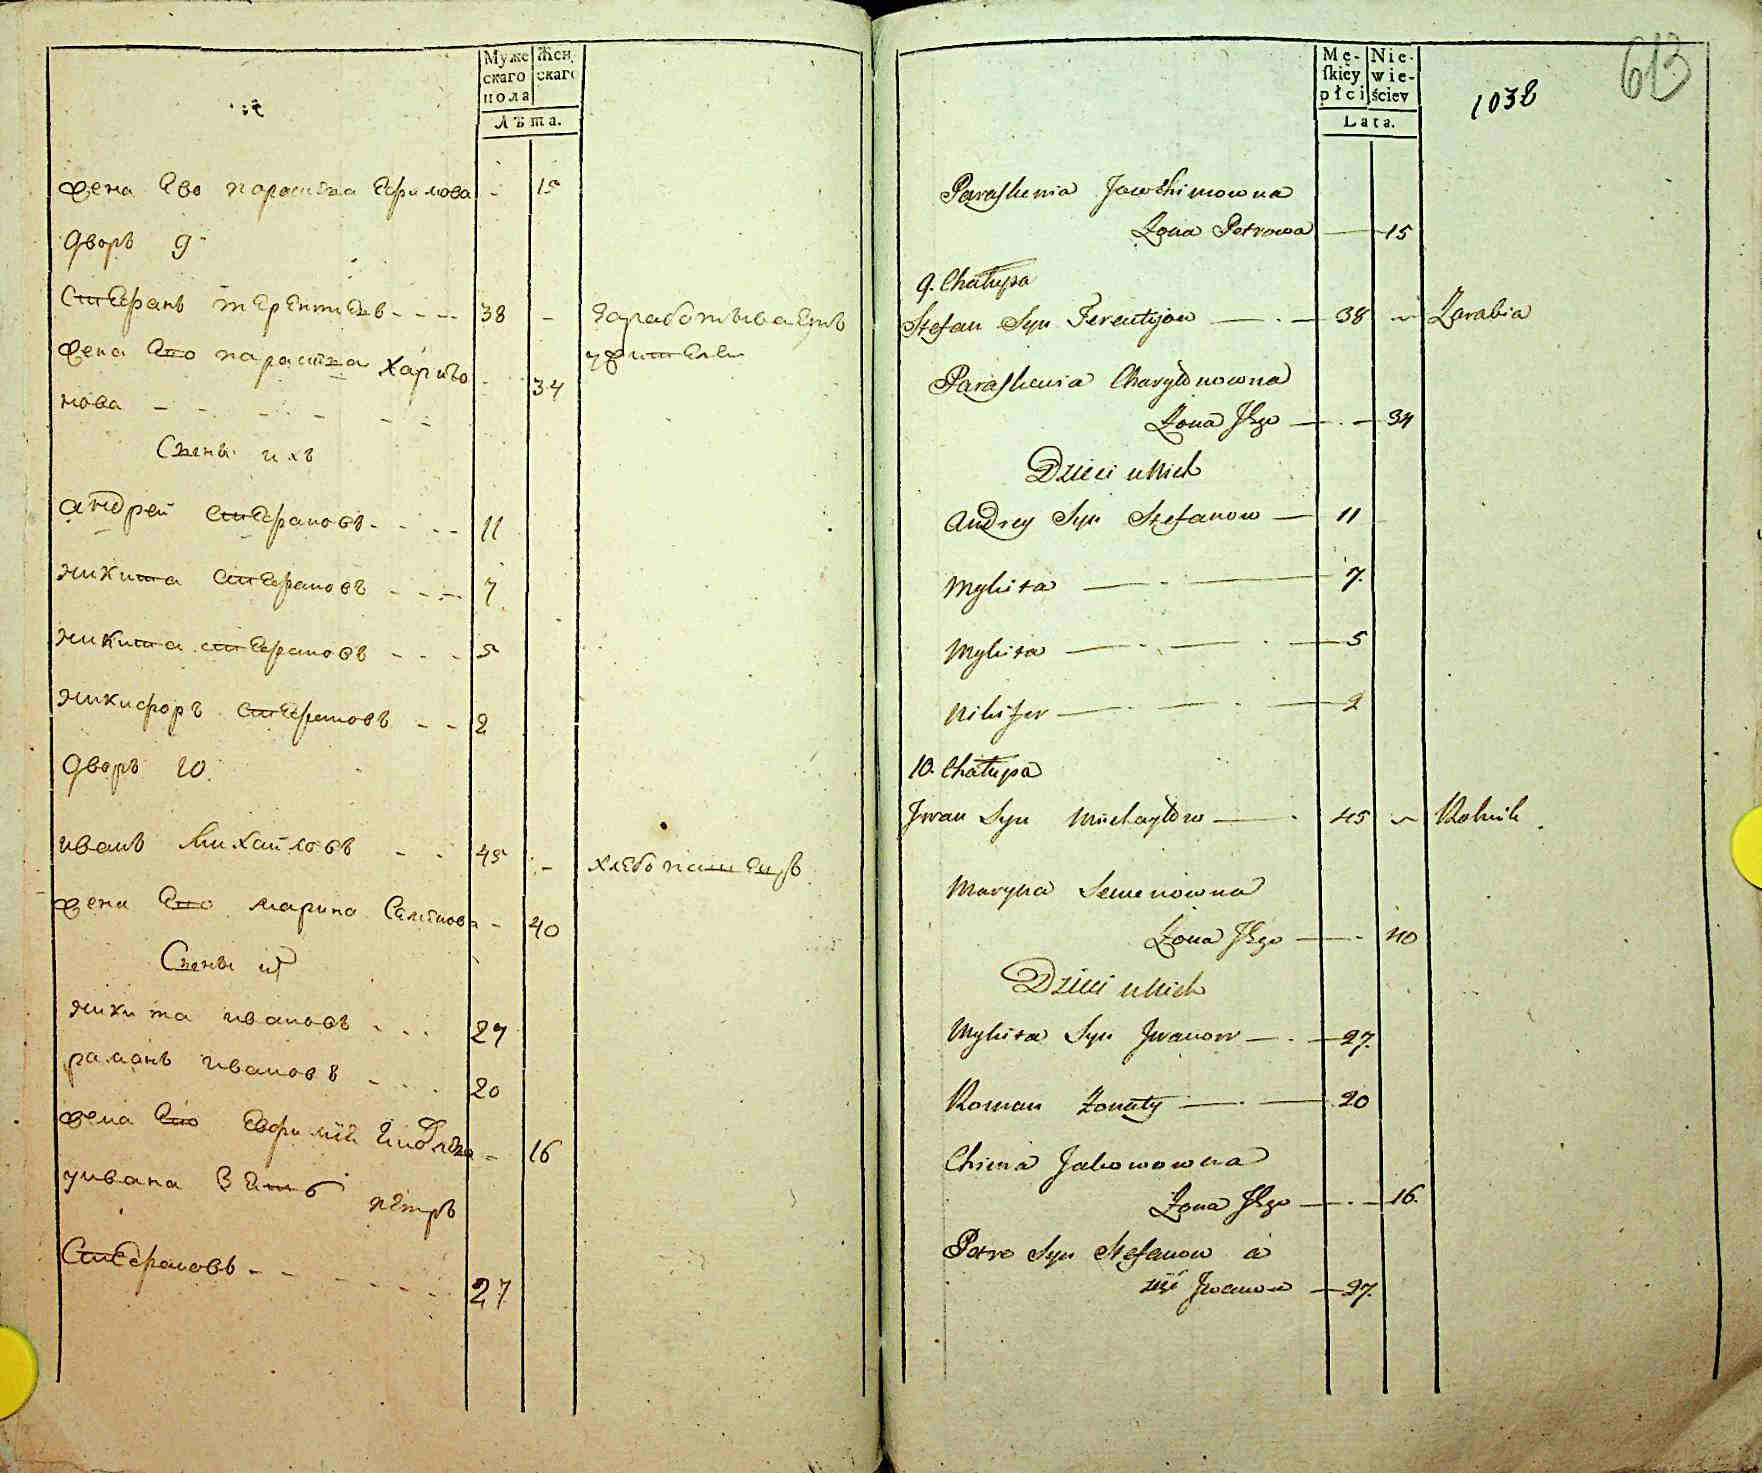 Муже
скаго
пола
Жен
скаго
Лѣта.
жена Его параска Ефимова - 15
дворъ 9
Стефанъ терентьев - - - - 38 - Зарабοтываетъ
жена Его параска Харито
нова - - - - - - 34
Сыны ихъ
андрей Стефановъ - - - - 11
никита Стефановъ - - - 7
никита стефановъ - - - 5
никифоръ стефановъ - - 2
дворъ 10.
иванъ Михайловъ - - 45 - хлебопашецъ
жена Его марина Семенова - 40
Сыны их
никита ивановъ - - - 27
раманъ ивановъ - - - 20
жена Его - 16
у ивана зеть петръ
Стефановъ - - - - - - 27
Mę-
skiey
płci
Nie-
wie-
ściey
Lata.
1032
613
Paraskewia Jowchimowna
Żona Petrowa — 15
9. Chałupa
Stefan Syn Terentijow — - — 38 ~ Zarabia
Paraskewia Charytonowna
Żona Jego — - — 34
Dzieci u Nich
Andrey Syn Stefanow — 11
Mykita — - — 7.
Mykita — - — - — 5
Nikifer — - — - — 2
10. Chałupa
Jwan Syn Michayłow — - 45 ~ Rolnik.
Maryna Semenowna
Żona Jego — - 40
Dzieci u Nich
Mykita Syn Jwanow — - — 27.
Roman Żonaty — - — 20
Chima Jakowowna
Żona Jego — - — 16.
Petro Syn Stefanow a
zięć Jwanow — 27.